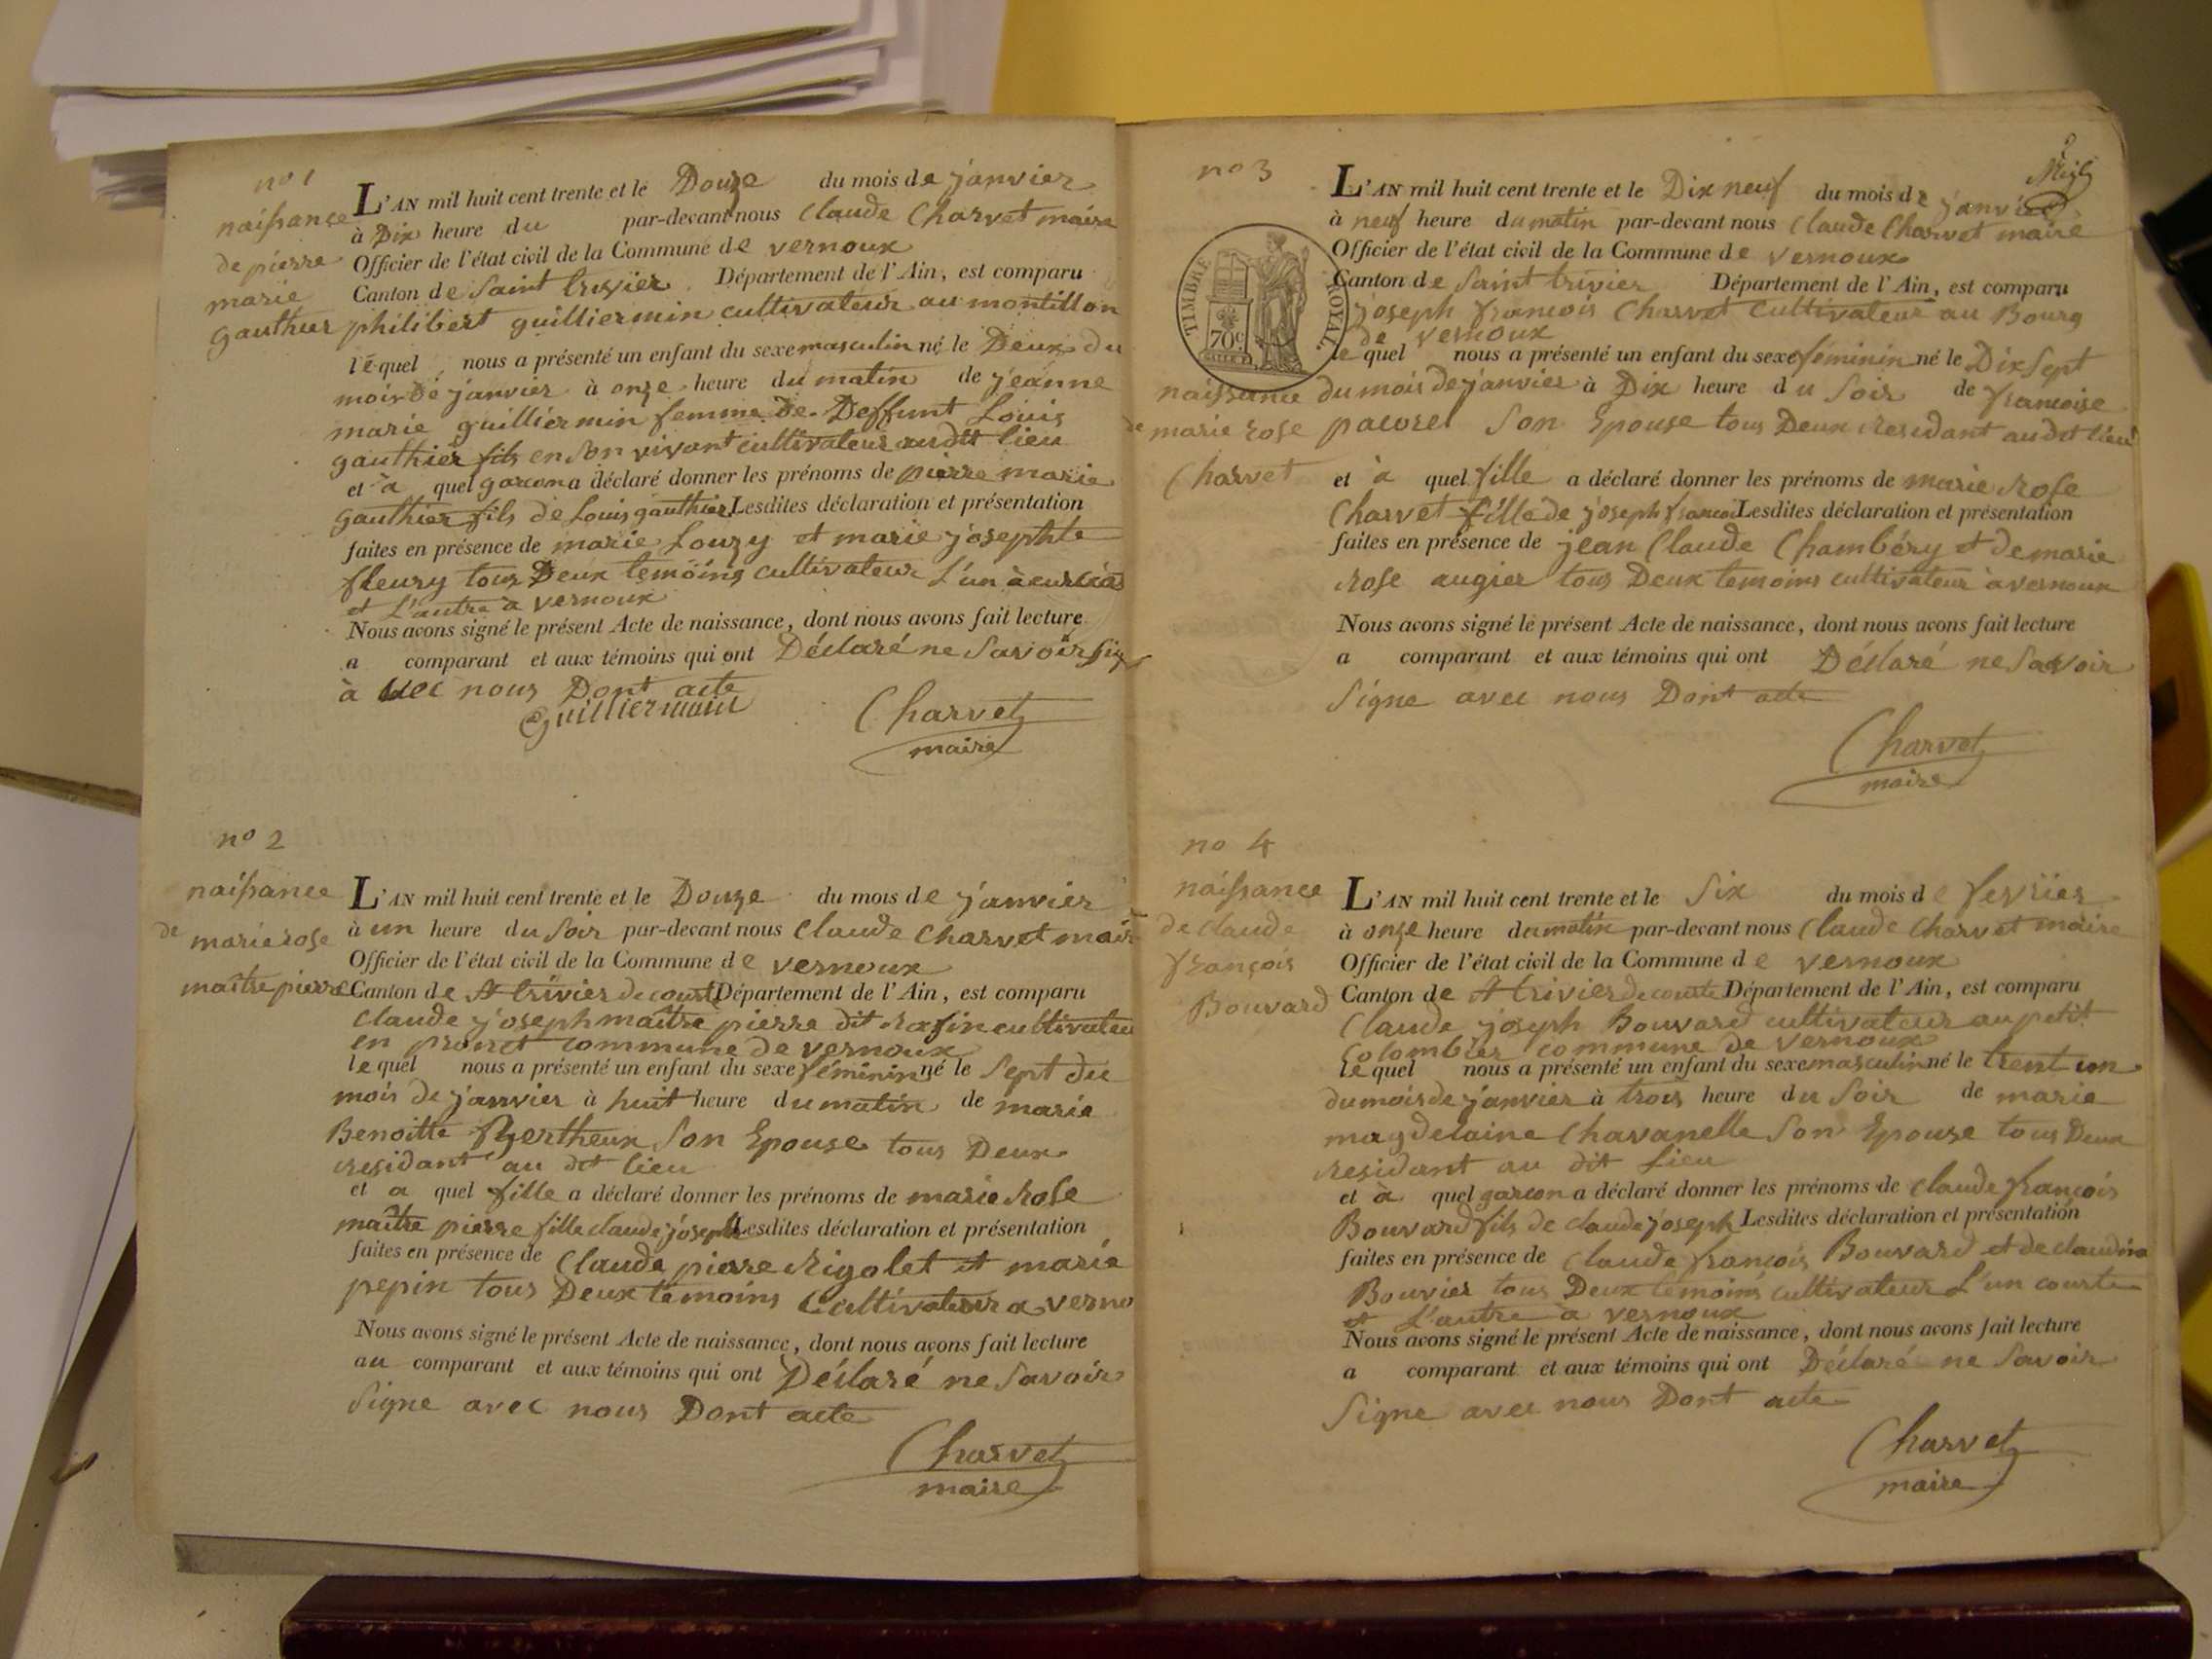 no 1
naissance
de pierre
marie
gauthier
L'AN mil huit cent trente et le Douze du mois de janvier
à Dix heure du par-devant nous Claude Charvet maire
Officier de l'état civil de la Commune de vernoux
Canton de Saint trivier Département de l'Ain, est comparu
philibert guilliermin cultivateur au montillon
lequel nous a présenté un enfant du sexe masculin né le Deux du
mois de janvier à onze heure du matin de jeanne
marie guilliermin femme de Deffunt Louis
gauthier fils en son vivant cultivateur audit lieu
et à quel garcon a déclaré donner les prénoms de pierre marie
gauthier fils de Louis gauthier Lesdites déclaration et présentation
faites en présence de marie Louzy et marie josephte
fleury tous Deux temoins cultivateur L'un à
et L'autre à vernoux
Nous avons signé le présent Acte de naissance, dont nous avons fait lecture
a comparant et aux témoins qui ont Déclaré ne Savoir sig
à vec nous Dont acte
Guilliermain
Charvet
maire
no 2
naissance
de marie rose
maitre pierre
L'AN mil huit cent trente et le Douze du mois de janvier
à un heure du Soir par-devant nous Claude Charvet mair
Officier de l'état civil de la Commune de vernoux
Canton de St trivier de courte Département de l'Ain, est comparu
Claude joseph maitre pierre dit cultivateu
en commune de vernoux
lequel nous a présenté un enfant du sexe féminin né le Sept du
mois de janvier à huit heure du matin de marie
Benoitte Son Epouse tous Deux
residant au dit lieu
et a quel fille a déclaré donner les prénoms de marie Rose
maitre pierre fille claude joseph Lesdites déclaration et présentation
faites en présence de Claude pierre Rigolet et marie
pepin tous Deux temoins Cultivateur a verno
Nous avons signé le présent Acte de naissance, dont nous avons fait lecture
au comparant et aux témoins qui ont Déclaré ne Savoir
Signe avec nous Dont acte
Charvet
maire
no 3
TIMBRE ROYAL
70c
naissance
de marie rose
Charvet
L'AN mil huit cent trente et le Dix neuf du mois de janvier
à neuf heure du matin par-devant nous Claude Charvet maire
Officier de l'état civil de la Commune de vernoux
Canton de Saint trivier Département de l'Ain, est comparu
joseph francois Charvet Cultivateur au Bourg
de vernoux
le quel nous a présenté un enfant du sexe féminin né le Dix Sept
du mois de janvier à Dix heure du Soir de francoise
pacorel Son Epouse tous Deux residant au dit lieu
et à quel fille a déclaré donner les prénoms de marie Rose
Charvet fille de joseph francoi Lesdites déclaration et présentation
faites en présence de jean Claude Chambéry et de marie
rose augier tous Deux temoins cultivateur à vernoux
Nous avons signé le présent Acte de naissance, dont nous avons fait lecture
a comparant et aux témoins qui ont Déclaré ne Savoir
Signe avec nous Dont acte
Charvet
maire
no 4
naissance
de claude
françois
Bouvard
L'AN mil huit cent trente et le Six du mois de fevrier
à onze heure du matin par-devant nous Claude Charvet maire
Officier de l'état civil de la Commune de vernoux
Canton de St trivier de courte Département de l'Ain, est comparu
Claude joseph Bouvard cultivateur au petit
Colombier commune de vernoux
Le quel nous a présenté un enfant du sexe masculin né le trent un
du mois de janvier à trois heure du Soir de marie
magdelaine Chavanelle Son Epouse tous Deux
residant au dit lieu
et à quel garcon a déclaré donner les prénoms de claude françois
Bouvard fils de claude joseph Lesdites déclaration et présentation
faites en présence de Claude françois Bouvard et de claudine
Bouvier tous Deux temoins cultivateur L'un courte
et L'autre à vernoux
Nous avons signé le présent Acte de naissance, dont nous avons fait lecture
a comparant et aux témoins qui ont Déclaré ne Savoir
Signe avec nous Dont acte
Charvet
maire